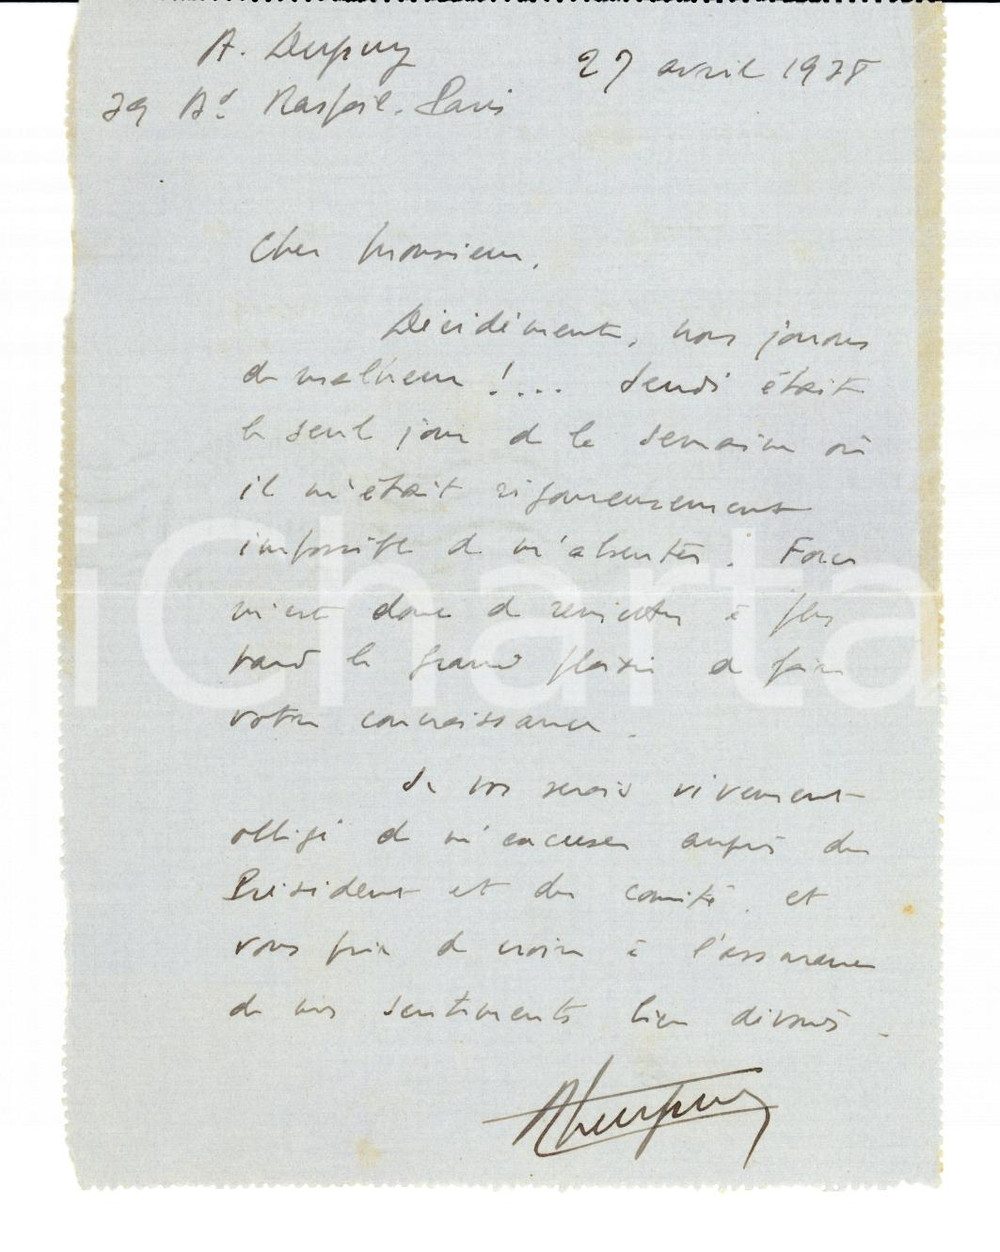 A. Dupuy
27 avril 1938
79 Bd Raspail. Paris
Cher Monsieur,
Décidément, nous jouons
de malheur !... Jeudi était
le seul jour de la semaine où
il m'était rigoureusement
impossible de m'absenter. Force
m'est donc de remettre à plus
tard le grand plaisir de faire
votre connaissance.
Je vous serais vivement
obligé de m'excuser auprès du
Président et du comité et
vous prie de croire à l'assurance
de mes sentiments bien dévoués.
ADupuy
iCharta